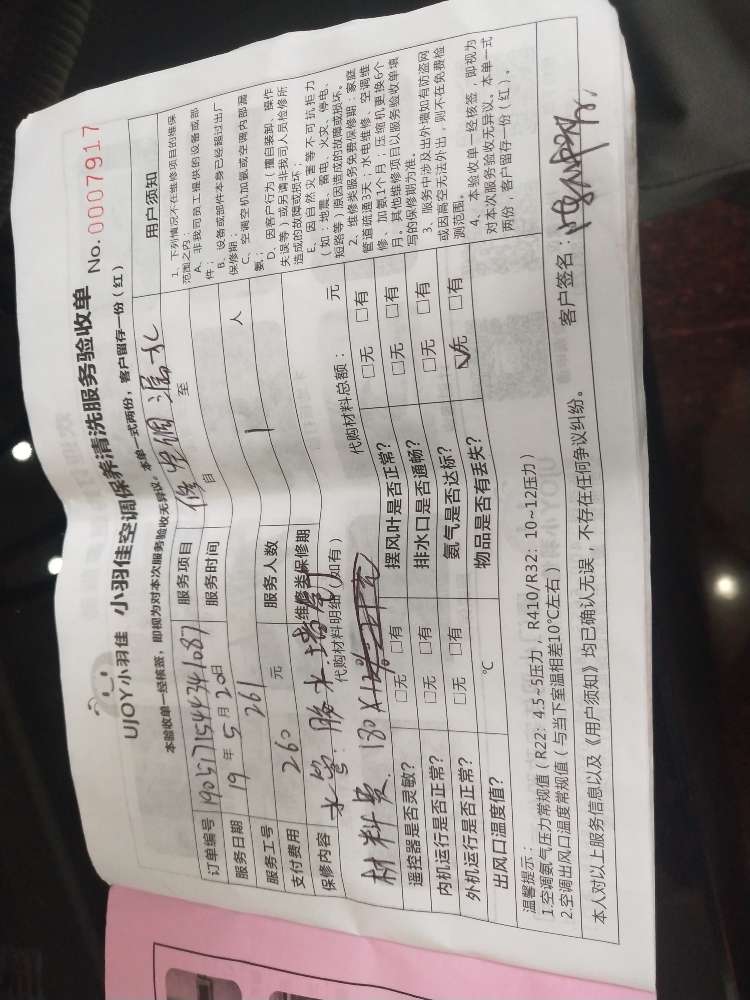 UJOY小羽佳 小羽佳空调保养清洗服务验收单 No. 0007917
本验收单一经核签，即视为对本次服务验收无异议。本单一式两份，客户留存一份（红）
订单编号 190517154434087 服务项目 修空调漏水
服务日期 19年5月20日 服务时间 自 至
服务工号 261 服务人数 1 人
支付费用 260 元 维修类保修期
保修内容 水管 胶水 代购材料明细（如有） 代购材料总额： 元
材料费
遥控器是否灵敏？ □无 □有 摆风叶是否正常？ □无 □有
内机运行是否正常？ □无 □有 排水口是否通畅？ □无 □有
外机运行是否正常？ □无 □有 氨气是否达标？ □无 □有
出风口温度值？ ℃ 物品是否有丢失？ ☑无 □有
用户须知
1、下列情况不在维修项目的维保
范围之内：
A、非我司员工提供的设备或部
件；
B、设备或部件本身已经超过出厂
保修期；
C、空调空机加氨或空调内部漏
氨；
D、因客户行为（擅自装卸、操作
失误等）或另请非我司人员检修所
造成的故障或损坏；
E、因自然灾害等不可抗拒力
（如：地震、雷电、火灾、停电、
短路等）原因造成的故障或损坏。
2、维修类服务免费保修期：家庭
管道疏通3天；水电维修、空调维
修、加氨1个月；压缩机更换6个
月。其他维修项目以服务验收单填
写的保修期为准。
3、服务中涉及出外墙如有防盗网
或因高空无法外出，则不在免费检
测范围。
4、本验收单一经核签，即视为
对本次服务验收无异议。本单一式
两份，客户留存一份（红）。
温馨提示：
1.空调氨气压力常规值（R22：4.5~5压力，R410/R32：10~12压力）
2.空调出风口温度常规值（与当下室温相差10℃左右）
本人对以上服务信息以及《用户须知》均已确认无误，不存在任何争议纠纷。 客户签名：